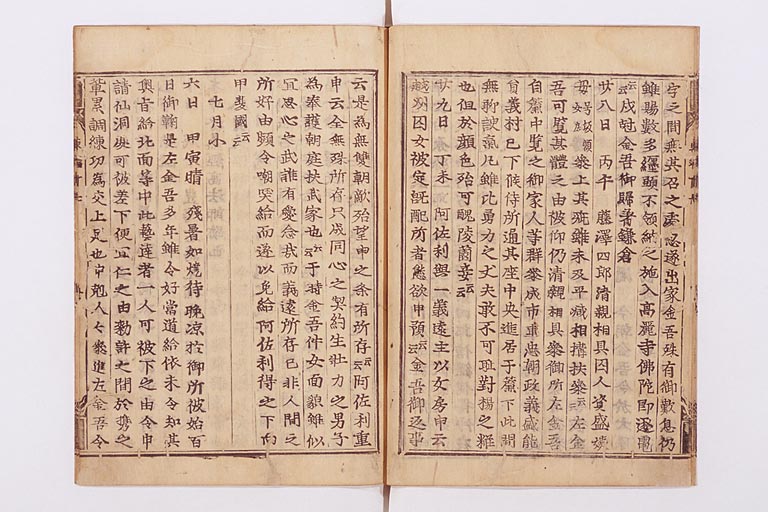 字之間無其召之處忽遂出家金吾殊有御歎息仍
雖賜數多纏頭不領納之施入高麗寺佛陀即逐電
云云戌尅金吾御歸著鎌倉
廿八日 丙午 藤澤四郎清親相具囚人資盛姨
母号坂額女房參上其疵雖未及平癒相構扶參云云左金
吾可覽其體之由被仰仍清親相具參御所左金吾
自簾中覽之御家人等群參成市重忠朝政義盛能
員義村已下候侍所通其座中央進居于簾下此間
無聊諛氣凡雖比勇力之丈夫敢不可耻對揚之粧
也但於顔色殆可醜陵薗妾云云
廿九日 丁未 阿佐利與一義遠主以女房申云
越州囚女被定既配所者態欲申預云云金吾御返事
云是為無雙朝敵殆望申之条有所存云云阿佐利重
申云全無殊所存只成同心之契約生壯力之男子
為奉護朝庭扶武家也云云于時金吾件女面貌雖似
冝思心之武誰有愛念哉而義遠所存已非人間之
所好由頻令嘲哢給而遂以免給阿佐利得之下向
甲斐國云云
七月小
六日 甲寅晴 殘暑如燒待晩凉於御所被始百
日御鞠是左金吾多年雖令好當道給依未令知其
奥旨給北面等中此藝達者一人可被下之由令申
請仙洞與可被差下便冝仁之由勅許之間於携之
輩累調練功為交上足也申剋人々參進左金吾令